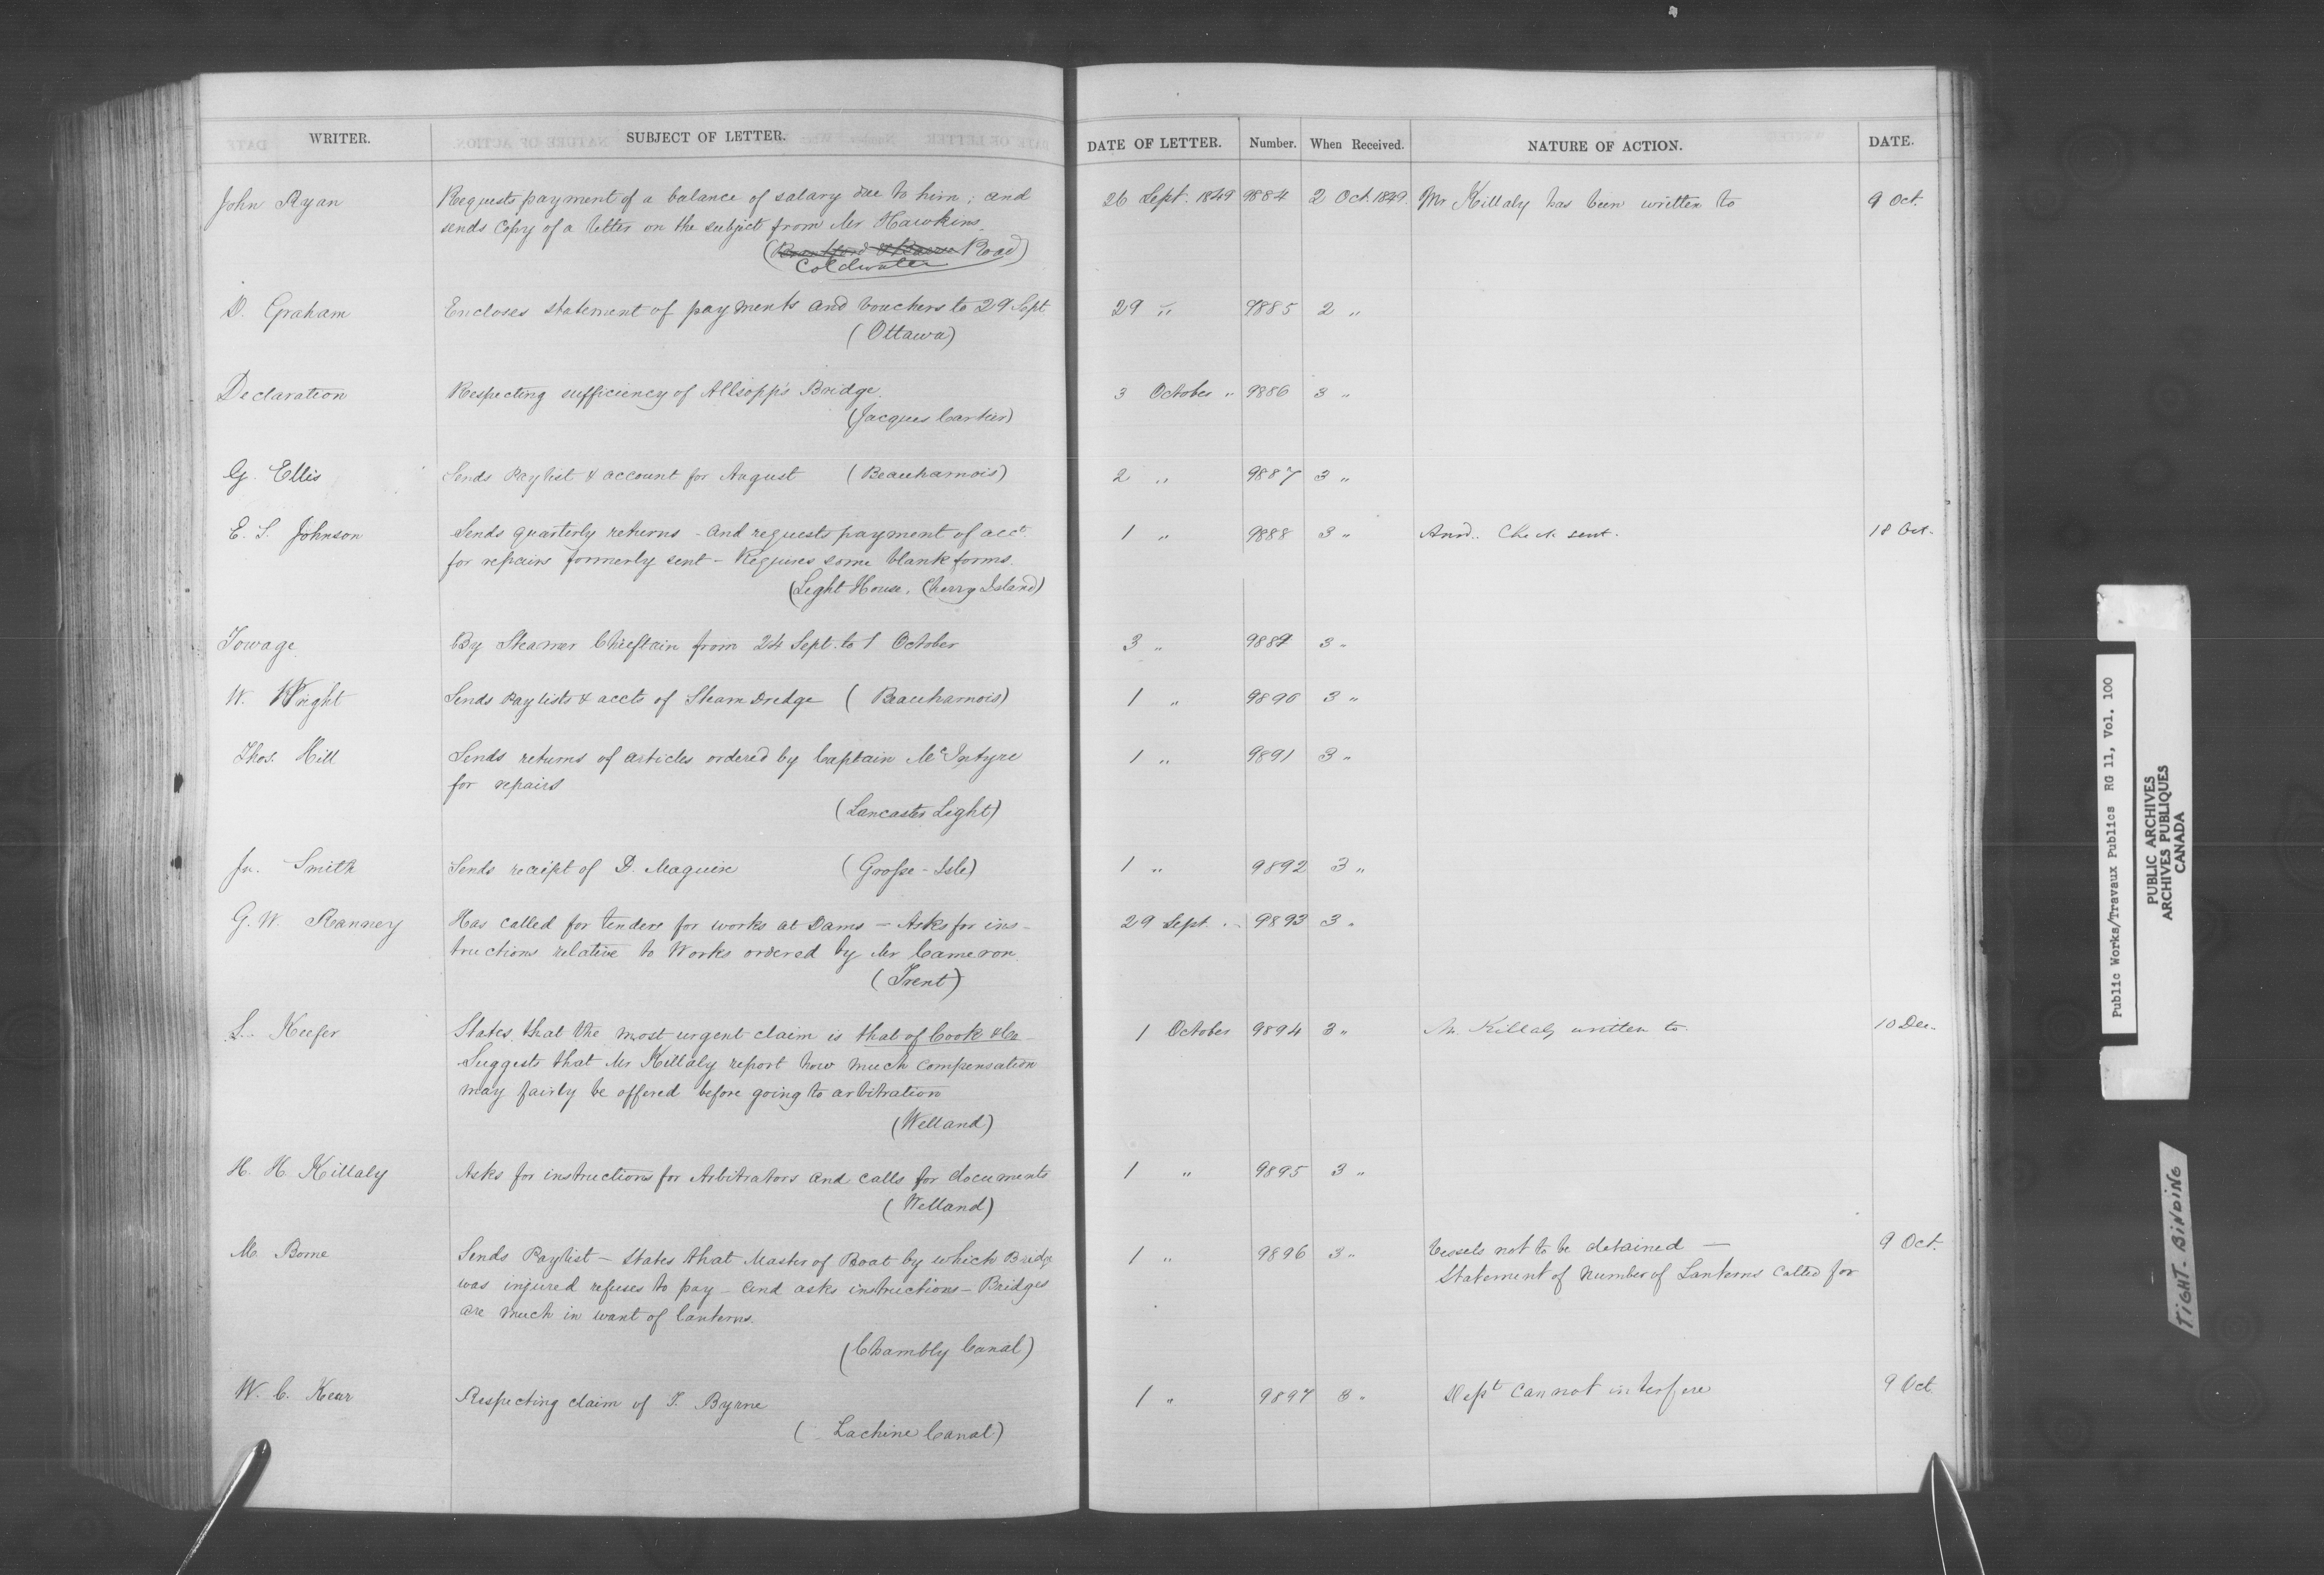 WRITER. SUBJECT OF LETTER. DATE OF LETTER. Number. When Received. NATURE OF ACTION. DATE.
John Ryan Requests payment of a balance of salary due to him; and 26 Sept. 1849 9884 2 Oct. 1849. Mr Killaly has been written to 9 Oct.
sends Copy of a letter on the subject from Mr Hawkins.
( Road)
Coldwater
D. Graham Encloses statement of payments and vouchers to 29 Sept 29 " 9885 2 "
(Ottawa)
Declaration Respecting sufficiency of Allsopp's Bridge. 3 October " 9886 3 "
(Jacques Cartier)
G. Ellis Sends Paylist & account for August (Beauharnois) 2 " 9887 3 "
E. S. Johnson Sends quarterly returns - and requests payment of acct 1 " 9888 3 " Ansd. Check sent. 18 Oct.
for repairs formerly sent - Requires some blank forms.
(Light House, Cherry Island)
Towage By Steamer Chieftain from 24 Sept. to 1 October 3 " 9889 3 "
W. Wright Sends Paylists & accts of Steam Dredge (Beauharnois) 1 " 9890 3 "
Thos. Hill Sends returns of articles ordered by Captain McIntyre 1 " 9891 3 "
for repairs
(Lancaster Light)
Jn. Smith Sends receipt of D. Maguire (Grosse-Isle) 1 " 9892 3 "
G. W. Ranney Has called for tenders for works at Dams - Asks for ins- 29 Sept. " 9893 3 "
tructions relative to Works ordered by Mr Cameron.
(Trent)
S. Keefer States that the most urgent claim is that of Cook & Co 1 October 9894 3 " Mr. Killaly written to. 10 Dec.
Suggests that Mr Killaly report how much compensation
may fairly be offered before going to arbitration
(Welland)
H. H. Killaly Asks for instructions for Arbitrators and calls for documents 1 " 9895 3 "
(Welland)
M. Borne Sends Paylist - States that Master of Boat by which Bridge 1 " 9896 3 " Vessels not to be detained - 9 Oct.
was injured refuses to pay - and asks instructions - Bridges Statement of number of Lanterns called for
are much in want of lanterns.
(Chambly Canal)
W. C. Respecting claim of T. Byrne 1 " 9897 3 " Dept cannot interfere 9 Oct
(Lachine Canal)
Public Works/Travaux Publics RG 11, Vol. 100
PUBLIC ARCHIVES
ARCHIVES PUBLIQUES
CANADA
TIGHT-BINDING